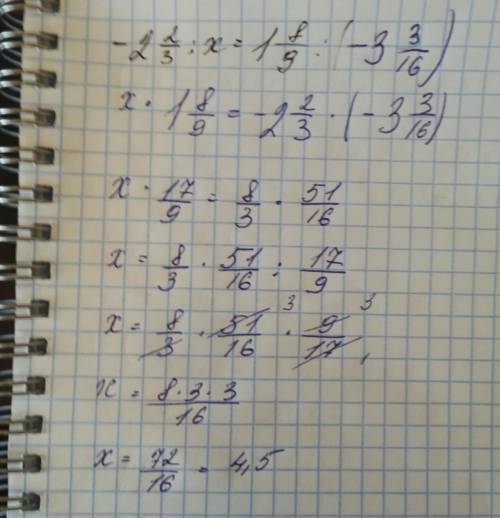 -2 2/3 : x = 1 8/9 : (-3 3/16)
x · 1 8/9 = -2 2/3 · (-3 3/16)
x · 17/9 = 8/3 · 51/16
x = 8/3 · 51/16 : 17/9
x = 8/3 · 51/16 3 · 9/17 3 ,
x = 8·3·3/16
x = 72/16 = 4,5